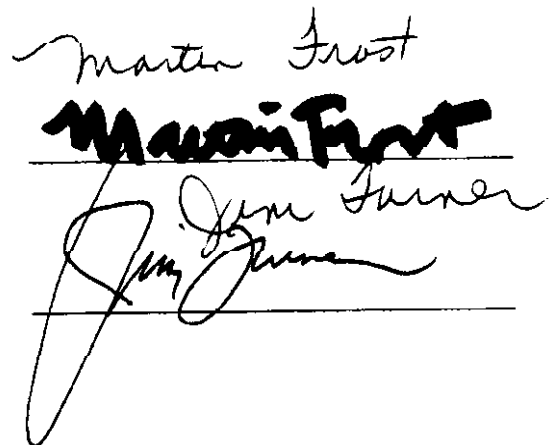 Martin Frost
Martin Frost
Jim Turner
Jim Turner